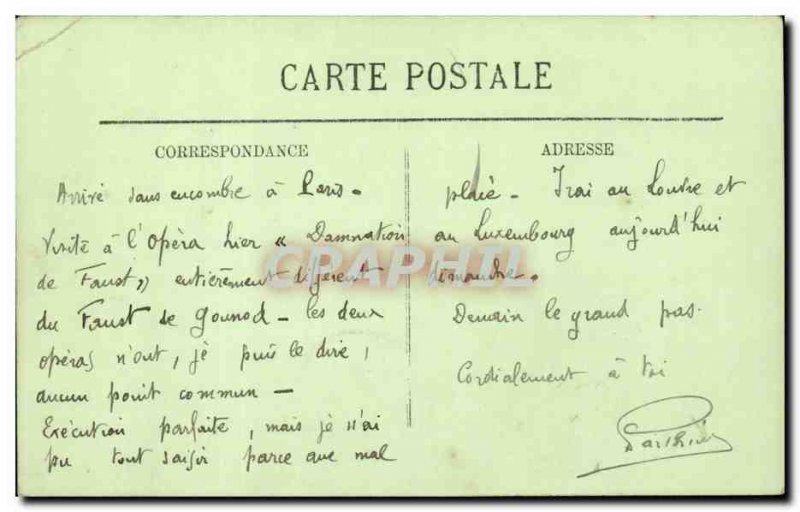 CARTE POSTALE
CORRESPONDANCE
Arrivé sans encombre à Paris -
Visité à l'Opèra hier « Damnation
de Faust » entièrement différent
du Faust de Gounod - les deux
opéras n'ont, je puis le dire,
aucun point commun -
Exécution parfaite, mais je n'ai
pu tout saisir parce que mal
ADRESSE
placé - Irai au Louvre et
au Luxembourg aujourd'hui
dimanche.
Demain le grand pas.
Cordialement à toi
CPAPHIL